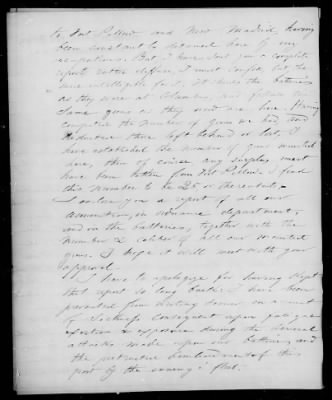 to Fort Pillow and New Madrid, having
been constantly detained here by my
occupations. But I have sent you a complete
report rather diffuse, I must confess, but the
more intelligible for it. It gives the batteries
as they were at Columbus, and follows the
same guns as they now are here. Having
compared the number of guns we had and
deductive those left behind or lost, I
have established the number of guns mounted
here, then of course any surplus must
have been taken from Fort Pillow. I find
this number to be 25 or thereabouts.
I enclose you a report of all our
ammunition, in ordnance department,
and on the batteries, together with the
number & caliber of all our mounted
guns. I hope it will meet with your
approval.
I have to apologize for having kept
that report so long back. I have been
prevented from writing sooner on account
of sickness consequent upon fatigue
exertion & exposure during the several
attacks made upon our batteries and
the protracted bombardment of this
post by the enemy's fleet.